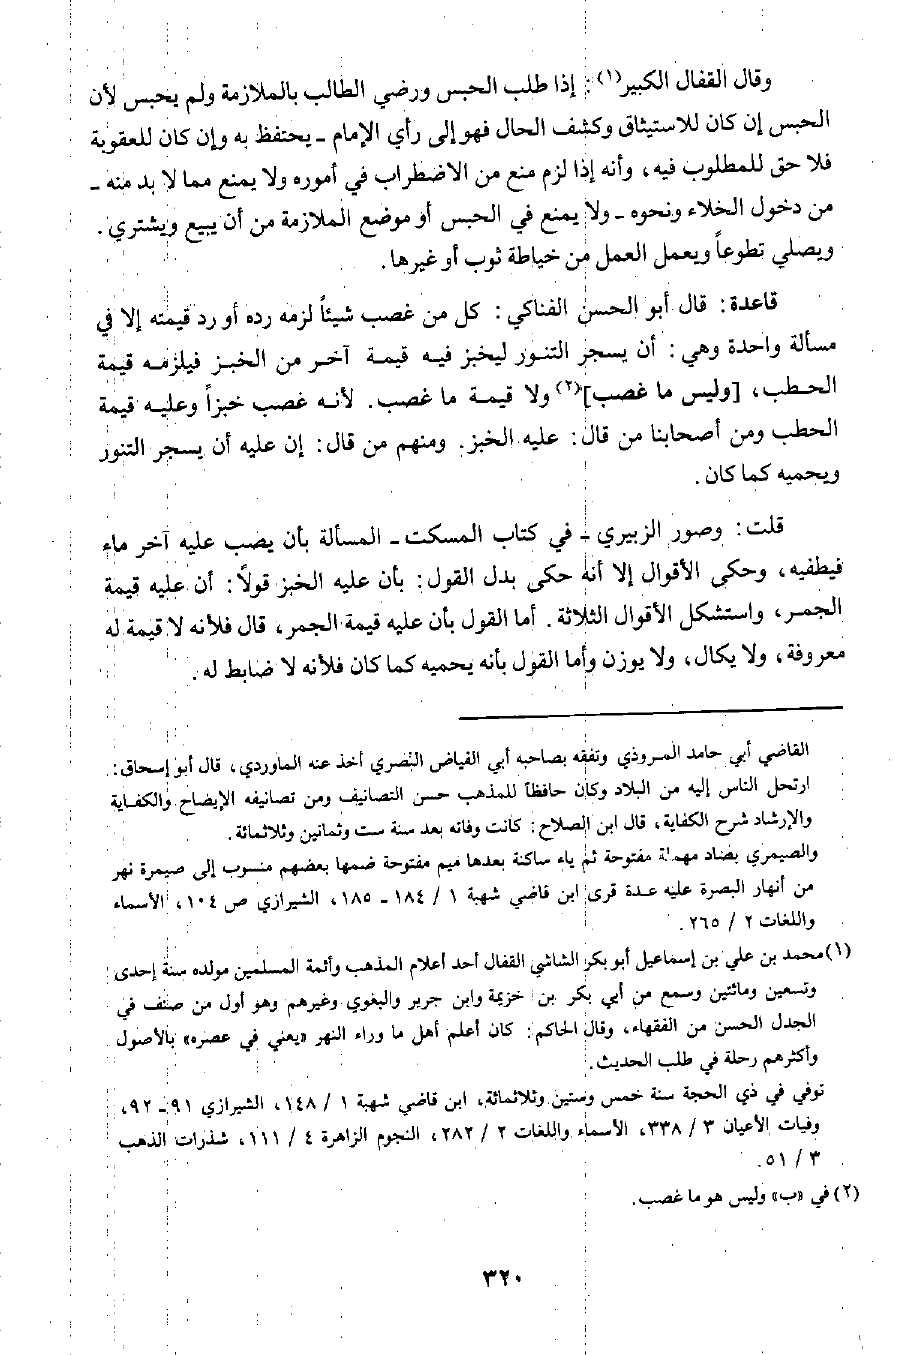 وقال القفال الكبير(١): إذا طلب الحبس ورضي الطالب بالملازمة ولم يحبس لأن
الحبس إن كان للاستيثاق وكشف الحال فهو إلى رأي الإمام - يحتفظ به وإن كان للعقوبة
فلا حق للمطلوب فيه، وأنه إذا لزم منع من الاضطراب في أموره ولا يمنع مما لا بد منه -
من دخول الخلاء ونحوه - ولا يمنع في الحبس أو موضع الملازمة من أن يبيع ويشتري.
ويصلي تطوعاً ويعمل العمل من خياطة ثوب أو غيرها.
قاعدة: قال أبو الحسن الفناكي: كل من غصب شيئاً لزمه رده أو رد قيمته إلا في
مسألة واحدة وهي: أن يسجر التنور ليخبز فيه قيمة آخر من الخبز فيلزمه قيمة
الحطب، [وليس ما غصب](٢) ولا قيمة ما غصب. لأنه غصب خبزاً وعليه قيمة
الحطب ومن أصحابنا من قال: عليه الخبز. ومنهم من قال: إن عليه أن يسجر التنور
ويحميه كما كان.
قلت: وصور الزبيري - في كتاب المسكت - المسألة بأن يصب عليه آخر ماء
فيطفيه، وحكى الأقوال إلا أنه حكى بدل القول: بأن عليه الخبز قولاً: أن عليه قيمة
الجمر، واستشكل الأقوال الثلاثة. أما القول بأن عليه قيمة الجمر، قال فلأنه لا قيمة له
معروفة، ولا يكال، ولا يوزن وأما القول بأنه يحميه كما كان فلأنه لا ضابط له.
القاضي أبي حامد المروذي وتفقه بصاحبه أبي الفياض النصري أخذ عنه الماوردي، قال أبو إسحاق:
ارتحل الناس إليه من البلاد وكان حافظاً للمذهب حسن التصانيف ومن تصانيفه الإيضاح والكفاية
والإرشاد شرح الكفاية، قال ابن الصلاح: كانت وفاته بعد سنة ست وثمانين وثلاثمائة.
والصيمري بضاد مهملة مفتوحة ثم ياء ساكنة بعدها ميم مفتوحة ضمها بعضهم منسوب إلى صيمرة نهر
من أنهار البصرة عليه عدة قرى ابن قاضي شهبة ١ / ١٨٤ - ١٨٥، الشيرازي ص ١٠٤، الأسماء
واللغات ٢ / ٢٦٥.
(١) محمد بن علي بن إسماعيل أبو بكر الشاشي القفال أحد أعلام المذهب وأئمة المسلمين مولده سنة إحدى
وتسعين ومائتين وسمع من أبي بكر بن خزيمة وابن جرير والبغوي وغيرهم وهو أول من صنف في
الجدل الحسن من الفقهاء، وقال الحاكم: كان أعلم أهل ما وراء النهر «يعني في عصره» بالأصول
وأكثرهم رحلة في طلب الحديث.
توفي في ذي الحجة سنة خمس وستين وثلاثمائة، ابن قاضي شهبة ١ / ١٤٨، الشيرازي ٩١ - ٩٢،
وفيات الأعيان ٣ / ٣٣٨، الأسماء واللغات ٢ / ٢٨٢، النجوم الزاهرة ٤ / ١١١، شذرات الذهب
٣ / ٥١.
(٢) في «ب» وليس هو ما غصب.
٣٢٠